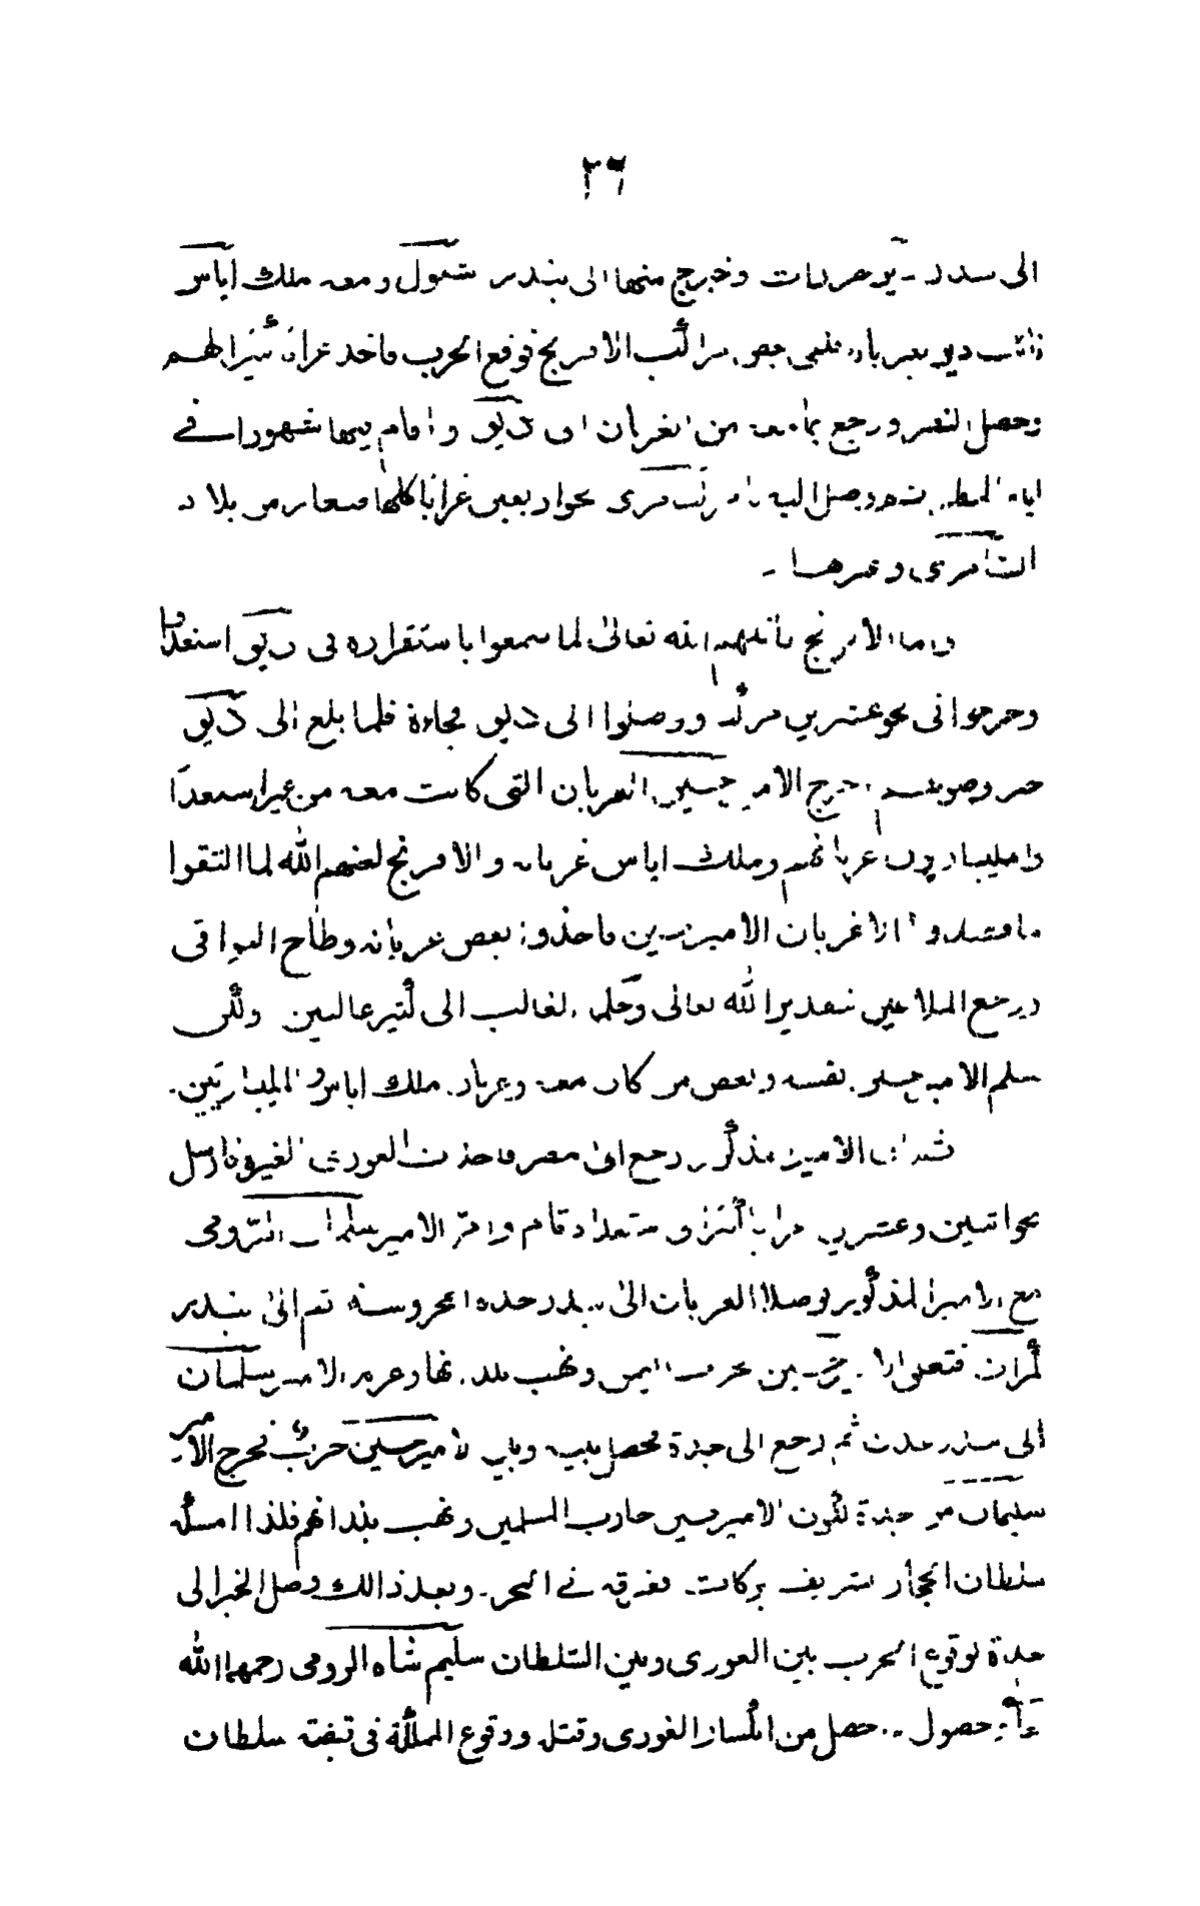 ٣٦
الى بندر ديو جزرات وخرج منها الى بندر شيول ومعه ملك اياس
نائب ديو فلقى بعض مراكب الافرنج فوقع الحرب فاخذ غرابا كبيرا لهم
وحصل النصر ورجع بما معه من الغربان الى ديو واقام فيها شهورا في
ايام المطر ووصل اليه نحو اربعين غرابا كلها صغار من بلاد
السامرى وغيرها -
واما الافرنج فانهم لعنهم الله تعالى لما سمعوا باستقراره في ديو استعدوا
وخرجوا في نحو عشرين مركبا ووصلوا الى ديو فجاءة فلما بلغ الى ديو
خبر وصولهم خرج الامير حسين الغربان التى كانت معه من غير استعداد
والمليباريون غربانهم وملك اياس غربانه والافرنج لعنهم الله لما التقوا
ما قصدوا الا غربان الامير حسين فاخذوا بعض غربانه وطاح البواقى
ورجع الملاعين بتقدير الله تعالى وحكمه الغالب الى كشير غالبين ولكن
سلم الامير حسين بنفسه وبعض من كان معه وغربان ملك اياس والمليباريين
ثم ان الامير المذكور رجع الى مصر فاخذت الغورى الغيرة فارسل
نحو اثنين وعشرين غرابا باستعداد تام وامر الامير سلمان الرومى
مع الامير المذكور فوصلا الغربان الى بندر جدة المحروسة ثم الى بندر
كمران فتعلق الامير حسين بحرب اليمن ونهب بلدانها وعزم الامير سلمان
الى بندر عدن ثم رجع الى جدة فحصل بينه وبين الامير حسين حرب فخرج الامير
سلمان من جدة لكون الامير حسين حارب المسلمين ونهب بلدانهم فلذا امسكه
سلطان الحجاز شريف بركات فغرقه في البحر - وبعد ذالك وصل الخبر الى
جدة لوقوع الحرب بين الغورى وبين السلطان سليم شاه الرومى رحمهما الله
حصول حصل من انكسار الغورى وقتله ووقوع المملكة فى قبضة سلطان